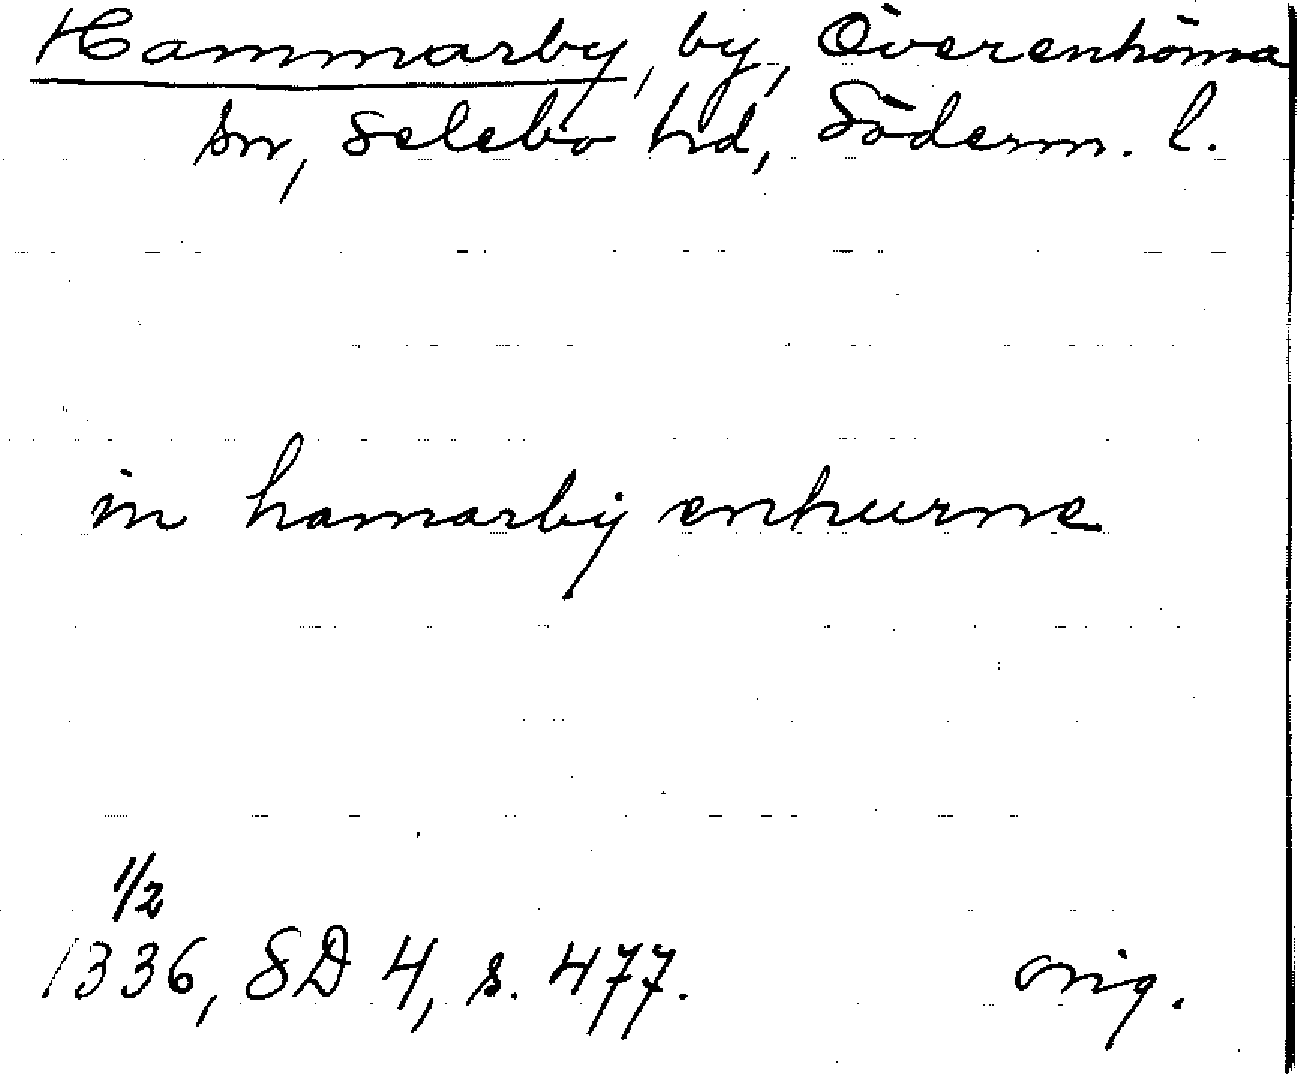 Hammarby, by, Överenhörna
sn, Selebo hd, Söderm. l.
in hamarby enhurne
1/2
1336, SD 4, s. 477. orig.